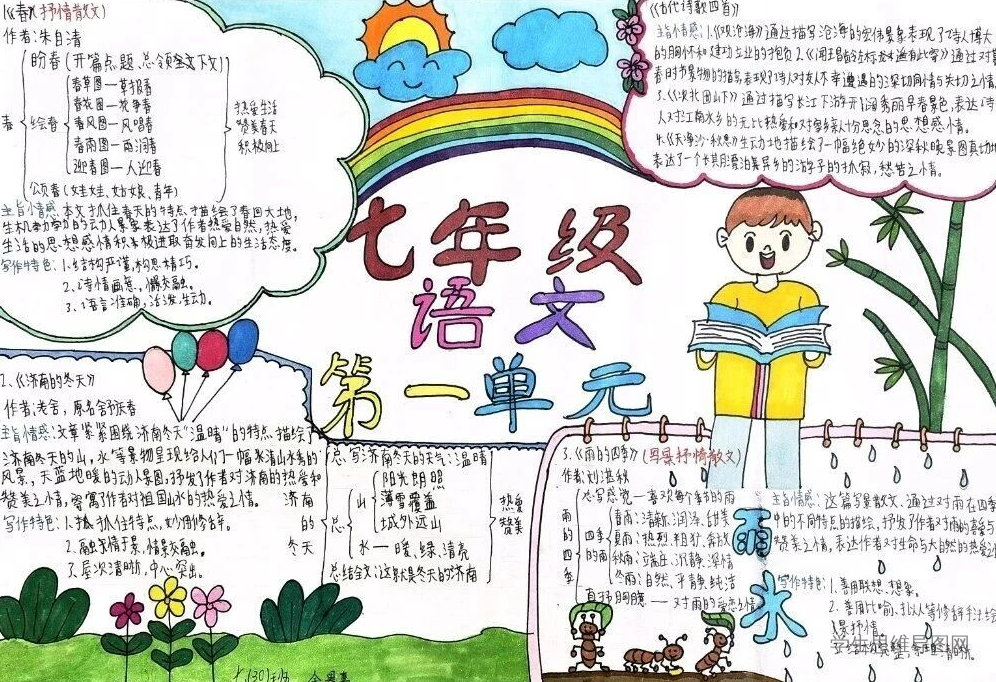 1《春》(抒情散文)
作者:朱自清
盼春(开篇点题,总领全文下文)
春草图—草报春
春花图—花争春
春 绘春 春风图—风唱春
春雨图—雨润春
迎春图—人迎春
颂春(娃娃、姑娘、青年)
热爱生活
赞美春天
积极向上
主旨情感:本文抓住春天的特点,描绘了春回大地,
生机勃勃的动人景象,表达了作者热爱自然,热爱
生活的思想感情和积极进取奋发向上的生活态度。
写作特色:1.结构严谨,构思精巧。
2.诗情画意,情景交融。
3.语言准确,活泼生动。
《古代诗歌四首》
主旨情感:1.《观沧海》通过描写沧海的宏伟景象表现了诗人博大
的胸怀和建功立业的抱负2.《闻王昌龄左迁龙标遥有此寄》通过对暮
春时节景物的描写表现了诗人对友人不幸遭遇的深切同情与关切之情
3.《次北固山下》通过描写长江下游开阔秀丽早春景色,表达诗
人对江南水乡的无比热爱和对家乡亲人的思念的思想感情。
4.《天净沙·秋思》生动地描绘了一幅绝妙的深秋晚景图真切地
表达了一个长期漂泊异乡的游子的孤寂,愁苦之情。
七年级
语文
第一单元
2、《济南的冬天》
作者:老舍,原名舒庆春
主旨情感:文章紧紧围绕济南冬天"温晴"的特点,描绘了
济南冬天的山,水等景物呈现给人们一幅水清山秀的
风景,天蓝地暖的动人景图,抒发了作者对济南的热爱和
赞美之情,寄寓作者对祖国山水的热爱之情。
写作特色:1.抓住特点,妙用修辞。
2.融情于景,情景交融。
3.层次清晰,中心突出。
济南
的
冬天
总写:济南冬天的天气:温晴
阳光朗照
总 山 薄雪覆盖
城外远山
水—暖,绿,清亮
总结全文:这就是冬天的济南
热爱
赞美
3.《雨的四季》(写景抒情散文)
作者:刘湛秋
总写感觉—喜欢每个季节的雨
雨的四季
四季的雨
春雨:清新、润泽、甜美
夏雨:热烈、粗犷、奔放
秋雨:端庄、沉静、深情
冬雨:自然、平静、纯洁
直抒胸臆——对雨的爱恋之情
雨水
主旨情感:这篇写景散文,通过对雨在四季
中的不同特点的描绘,抒发了作者对雨的喜爱与
赞美之情,表达作者对生命与大自然的热爱之
写作特色:1.善用联想、想象。
2.善用比喻、拟人等修辞手法绘
景抒情。
学生思维导图网